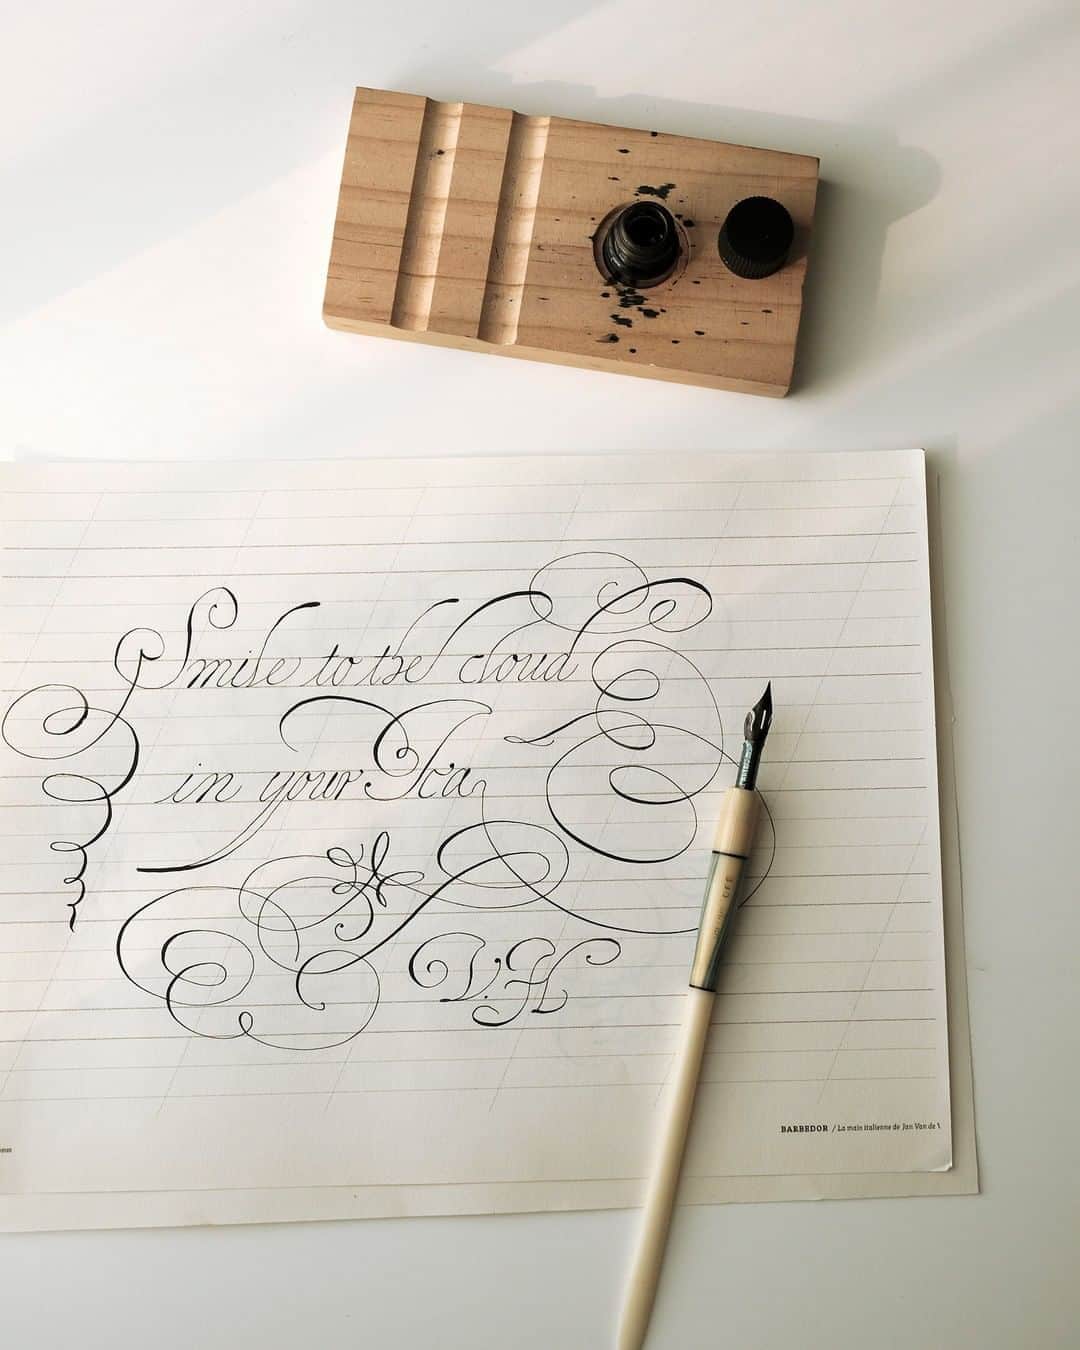 Smile to the cloud
in your Tea
V.H
BARBEDOR / La main italienne de Jan Van de